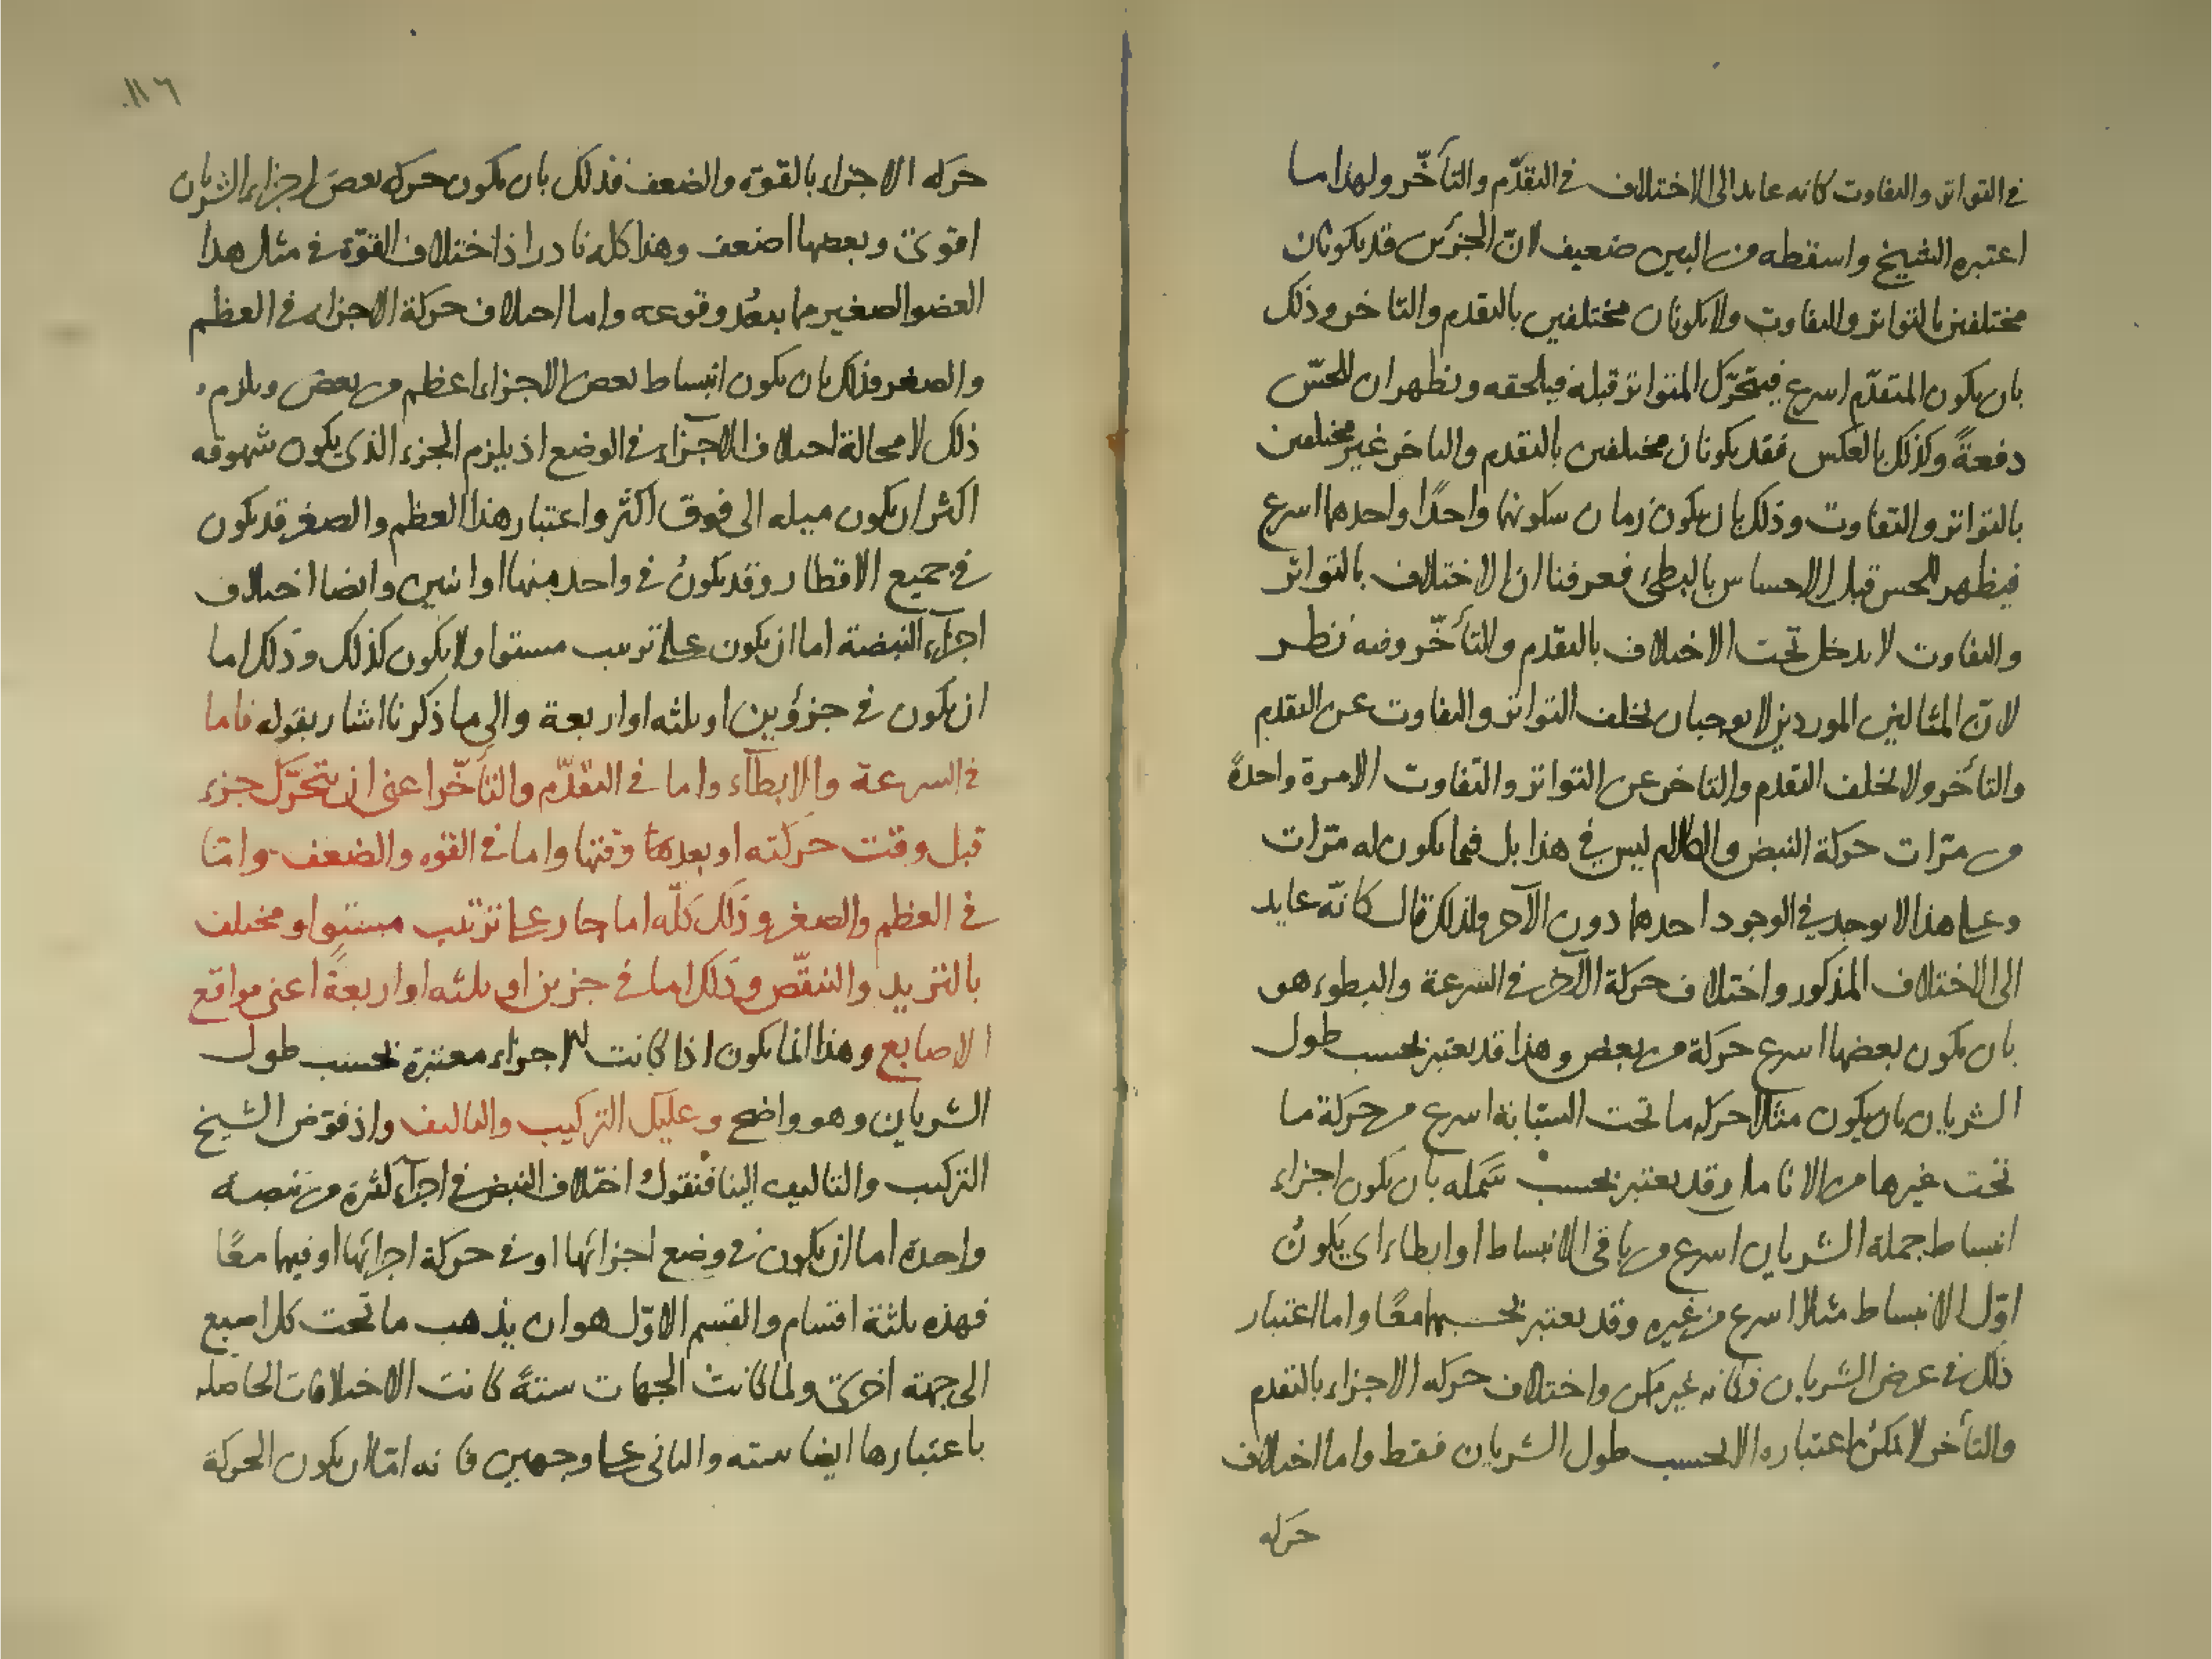 في التواتر والتفاوت كانه عايد الى الاختلاف في التقدّم والتأخّر ولهذا ما
اعتبره الشيخ واسقطه من البين ضعيف لانّ الجزئين قد يكونان
مختلفين بالتواتر والتفاوت ولا يكونان مختلفين بالتقدم والتاخر وذلك
بان يكون المتقدّم اسرع فيتحرّك المتواتر قبله فيلحقه ويظهران للحسّ
دفعةً وكذلك بالعكس فقد يكونان مختلفين بالتقدم والتاخر غير مختلفين
بالتواتر والتفاوت وذلك بان يكون زمان سكونهما واحدًا واحدهما اسرع
فيظهر للحس قبل الاحساس بالبطئ فعرفنا ان الاختلاف بالتواتر
والتفاوت لا يدخل تحت الاختلاف بالتقدم والتأخّر وفيه نظر
لانّ المثالين الموردين لا يوجبان تخلف التواتر والتفاوت عن التقدم
والتأخر ولا تخلف التقدم والتاخر عن التواتر والتفاوت الا مرة واحدةً
من مرّات حركة النبض والكلام ليس في هذا بل فيما يكون له مرّات
وعلى هذا لا يوجد في الوجود احدهما دون الآخر ولذلك قال كانّه عايد
الى الاختلاف المذكور واختلاف حركة الآخر في السرعة والبطوء هو
بان يكون بعضها اسرع حركة من بعض وهذا قد يعتبر بحسب طول
الشريان بان يكون مثلا حركه ما تحت السبّابة اسرع من حركة ما
تحت غيرها من الانامل وقد يعتبر بحسب سمكه بان يكون اجزاء
انبساط جملة الشريان اسرع من باقى الانبساط او ابطاء اى يكونُ
اوّل الانبساط مثلا اسرع من غيره وقد يعتبر بحسبهما معًا واما اعتبار
ذلك في عرض الشريان فكانه غير ممكن واختلاف حركه الاجزاء بالتقدم
والتأخر لا يمكن اعتباره الا بحسب طول الشريان فقط واما اختلاف
حركه
١١٦
حركه الاجزاء بالقوة والضعف فذلك بان يكون حركه بعض اجزاء الشريان
اقوى وبعضها اضعف وهذا كله نادر اذ اختلاف القوّة في مثل هذا
العضو الصغير مما يبعُد وقوعه واما اختلاف حركة الاجزاء في العظم
والصغر فذلك بان يكون انبساط بعض الاجزاء اعظم من بعض ويلزم
ذلك لا محالة اختلاف الاجزاء في الوضع اذ يلزم الجزء الذى يكون شهوقه
اكثر ان يكون ميله الى فوق اكثر واعتبار هذا العظم والصغر قد يكون
في جميع الاقطار وقد يكونُ في واحد منها او اثنين وايضا اختلاف
اجزاء النبضة اما ان يكون على ترتيب مستو او لا يكون كذلك وذلك اما
ان يكون في جزؤين او ثلثه او اربعة والى ما ذكرنا اشار بقوله فاما
في السرعة والابطاء واما في التقدّم والتأخّر اعنى ان يتحرّك جزء
قبل وقت حركته او بعدها وقتها واما في القوه والضعف وامّا
في العظم والصغر وذلك كلّه اما جار على ترتيب مستوٍ او مختلف
بالتزيد والتنقّص وذلك اما في جزين او ثلثه او اربعةً اعنى مواقع
الاصابع وهذا انما يكون اذا كانت الاجزاء معتبرة بحسب طول
الشريان وهو واضح وعليك التركيب والتاليف واذ فوّض الشيخ
التركيب والتاليف الينا فنقول اختلاف النبض في اجزاء كثرة من نبضه
واحدة اما ان يكون في وضع اجزائها او في حركة اجزائها او فيهما معًا
فهذه ثلثة اقسام والقسم الاوّل هو ان يذهب ما تحت كل اصبع
الى جهة اخرى ولما كانت الجهات ستةً كانت الاختلافات الحاصله
باعتبارها ايضا سته والثانى على وجهين فانه امّا ان يكون الحركة